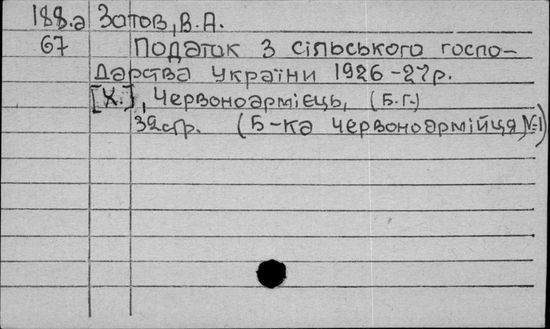 188.а Затов, В.А.
67 Податок з сільського госпо-
дарства України 1926-27р.
[Х.], Червоноармієць, (Б.Г.)
32стр. (Б-ка червоноармійця, №1)